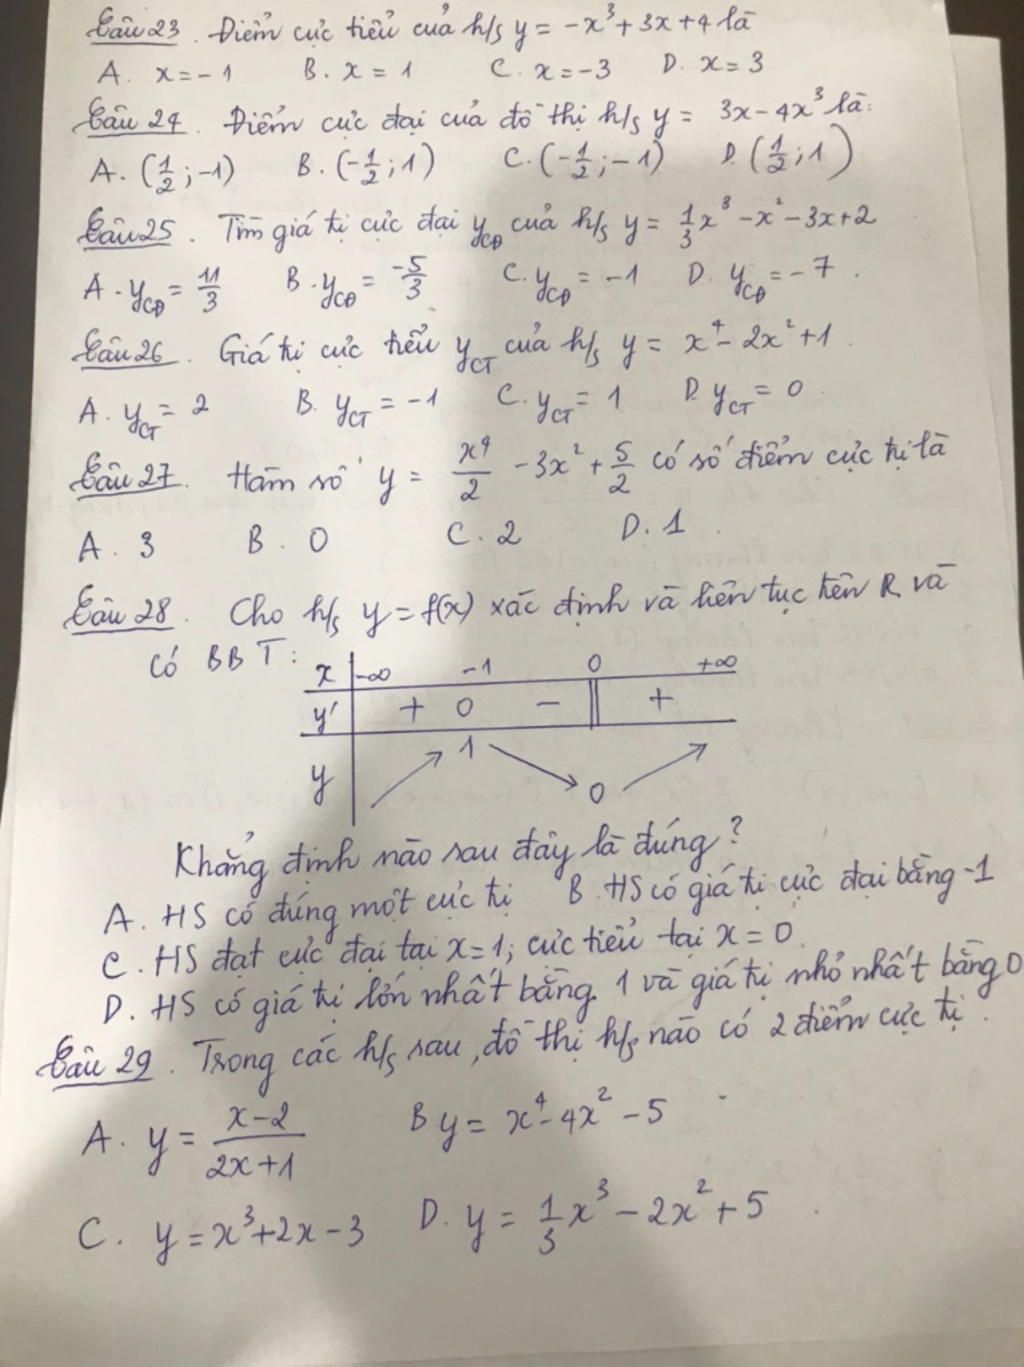 Câu 23. Điểm cực tiểu của h/s y = -x³ + 3x + 4 là
A. x = -1 B. x = 1 C. x = -3 D. x = 3
Câu 24. Điểm cực đại của đồ thị h/s y = 3x - 4x³ là:
A. (1/2; -1) B. (-1/2; 1) C. (-1/2; -1) D. (1/2; 1)
Câu 25. Tìm giá trị cực đại y_CĐ của h/s y = 1/3x³ - x² - 3x + 2
A. y_CĐ = 11/3 B. y_CĐ = -5/3 C. y_CĐ = -1 D. y_CĐ = -7.
Câu 26. Giá trị cực tiểu y_CT của h/s y = x⁴ - 2x² + 1.
A. y_CT = 2 B. y_CT = -1 C. y_CT = 1 D. y_CT = 0.
Câu 27. Hàm số y = x⁴/2 - 3x² + 5/2 có số điểm cực trị là
A. 3 B. 0 C. 2 D. 1.
Câu 28. Cho h/s y = f(x) xác định và liên tục trên R và
có BBT:
x -∞ -1 0 +∞
y' + 0 - || +
y 1 0
Khẳng định nào sau đây là đúng?
A. HS có đúng một cực trị B. HS có giá trị cực đại bằng -1
C. HS đạt cực đại tại x = 1; cực tiểu tại x = 0.
D. HS có giá trị lớn nhất bằng 1 và giá trị nhỏ nhất bằng 0
Câu 29. Trong các h/s sau, đồ thị h/s nào có 2 điểm cực trị.
A. y = (x-2)/(2x+1) B y = x⁴ - 4x² - 5
C. y = x³ + 2x - 3 D. y = 1/3x³ - 2x² + 5